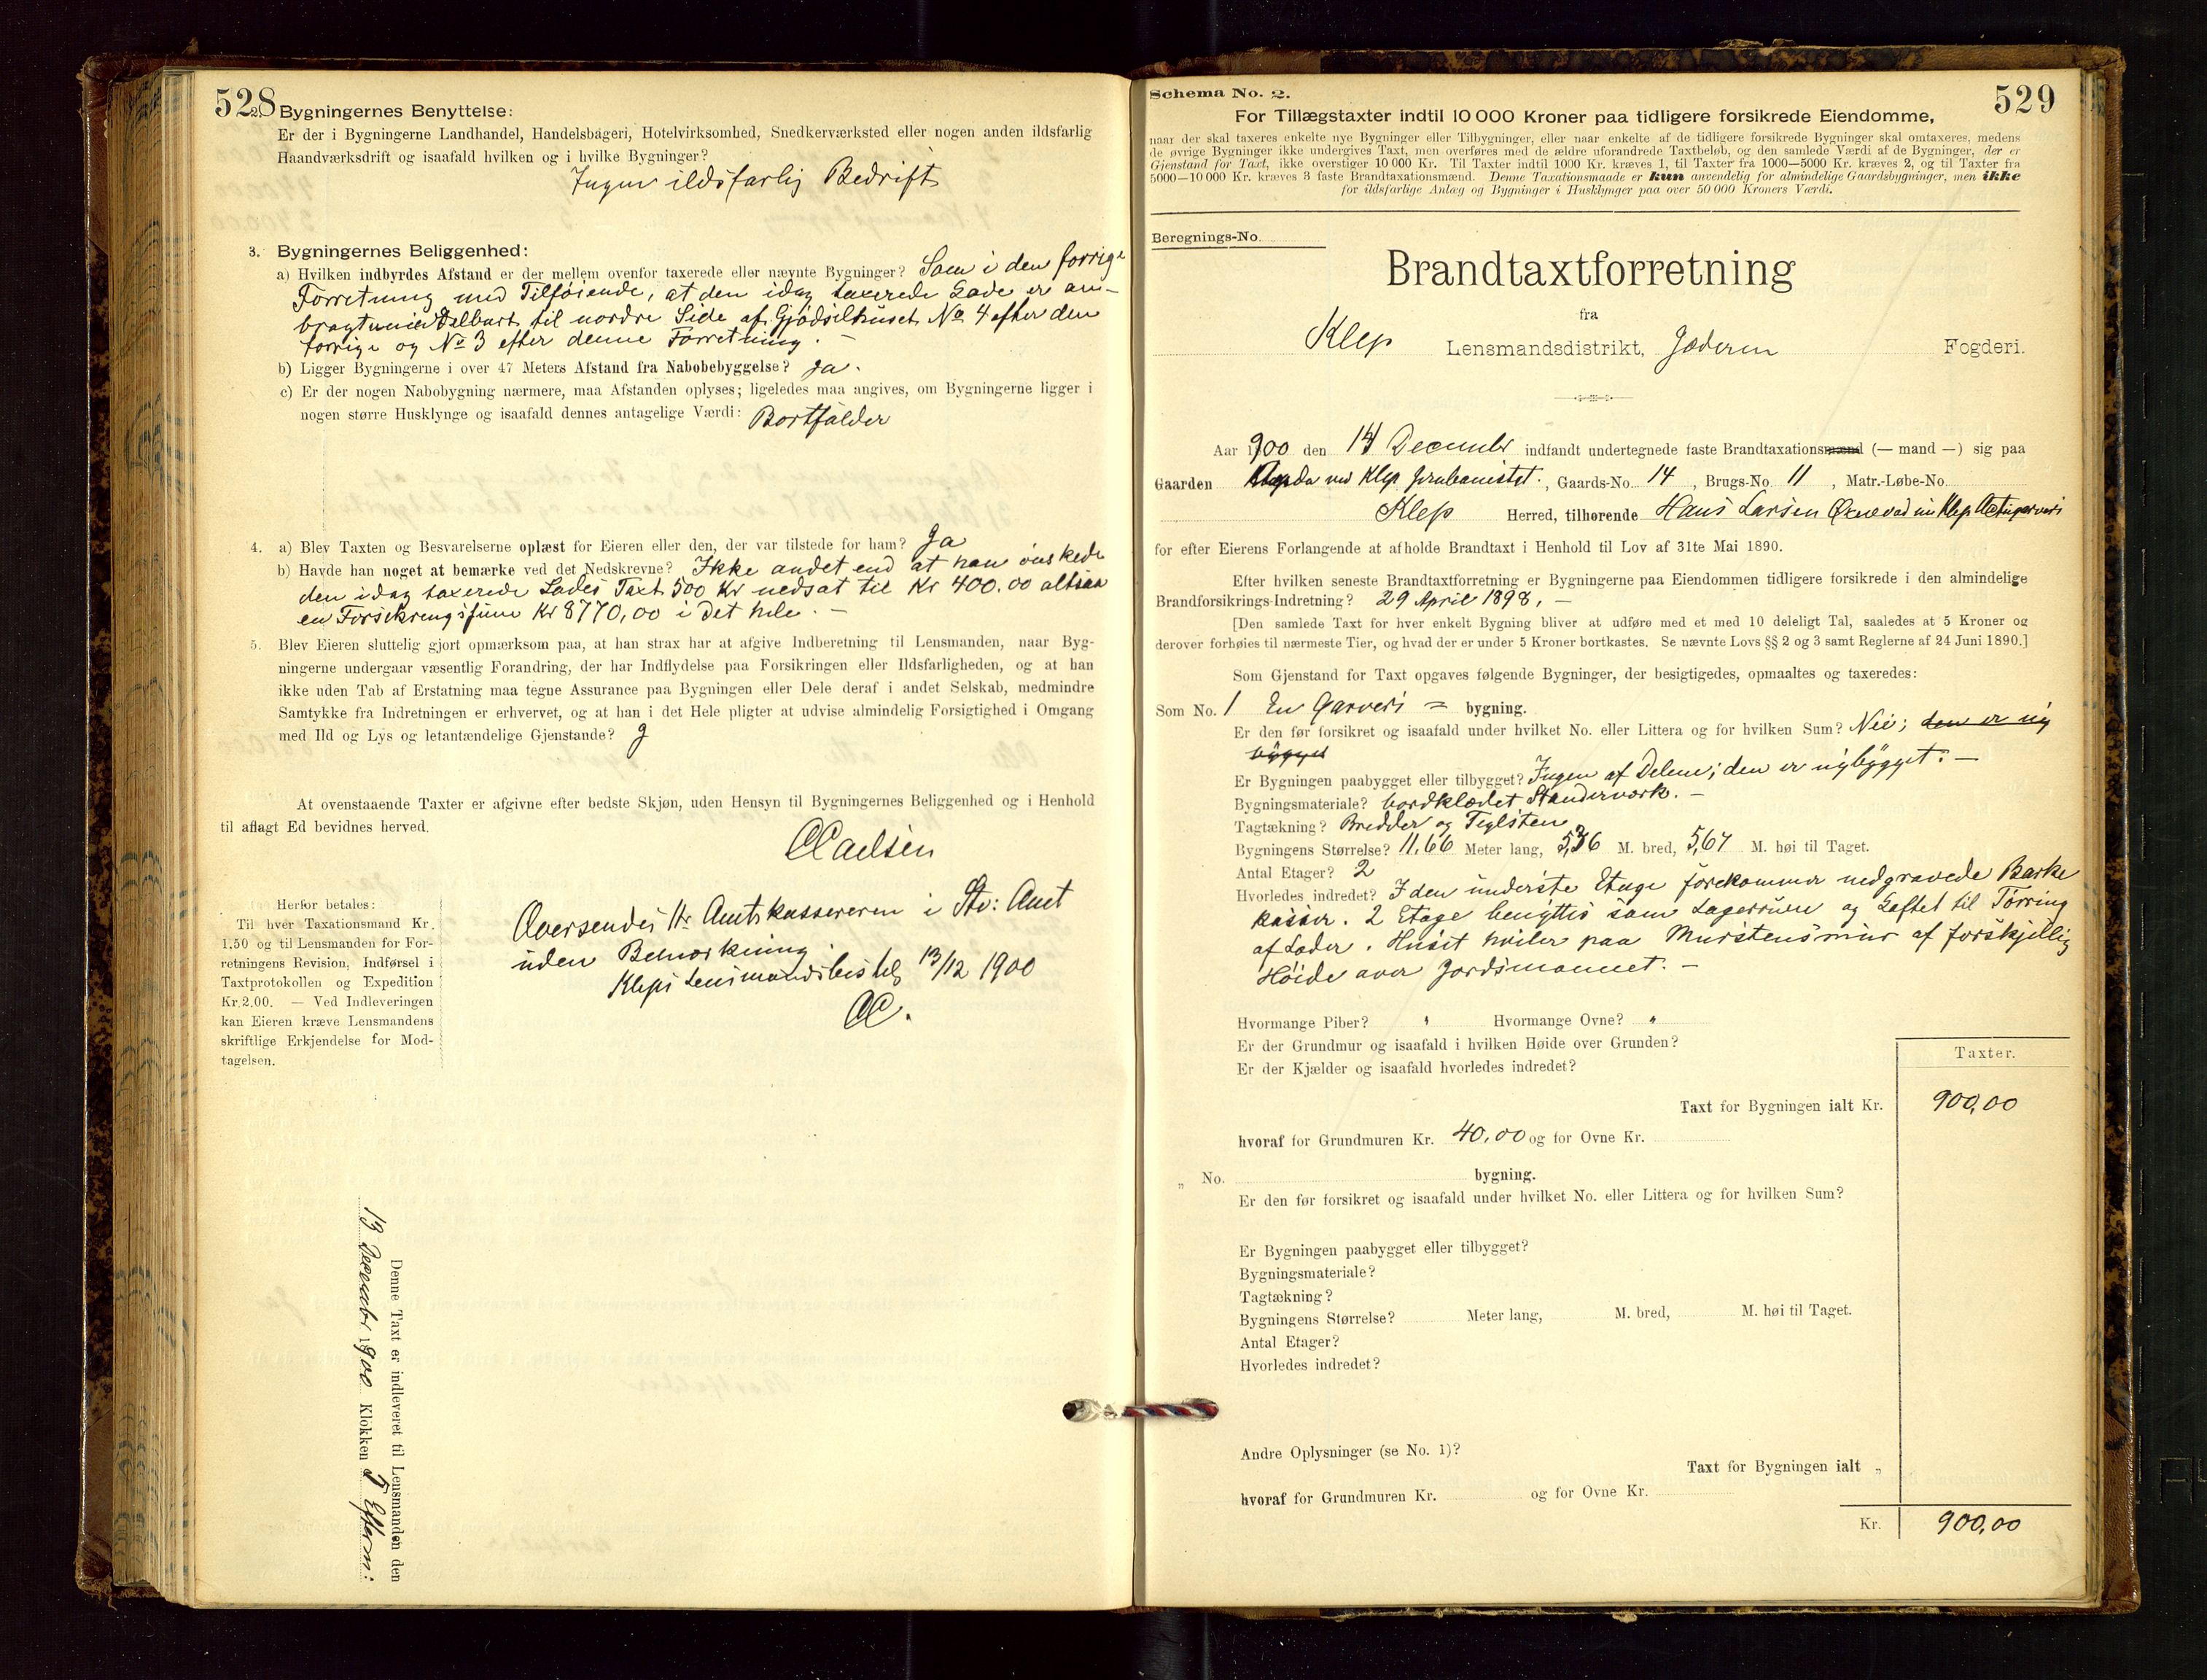 528
2. Bygningernes Benyttelse:
Er der i Bygningerne Landhandel, Handelsbageri, Hotelvirksomhed, Snedkerværksted eller nogen anden ildsfarlig
Haandværksdrift og isaafald hvilken og i hvilke Bygninger?
Ingen ildsfarlig Bedrift
3. Bygningernes Beliggenhed:
a) Hvilken indbyrdes Afstand er der mellem ovenfor taxerede eller nævnte Bygninger? Som i den forrige
Forretning med Tilføiende, at den idag taxerede Lade er an-
bragt umiddelbart til nordre Side af Gjødselhuset No 4 efter den
forrige og No 3 efter denne Forretning. –
b) Ligger Bygningerne i over 47 Meters Afstand fra Nabobebyggelse? Ja.
c) Er der nogen Nabobygning nærmere, maa Afstanden oplyses; ligeledes maa angives, om Bygningerne ligger i
nogen større Husklynge og isaafald dennes antagelige Værdi: Bortfalder
4. a) Blev Taxten og Besvarelserne oplæst for Eieren eller den, der var tilstede for ham? Ja
b) Havde han noget at bemærke ved det Nedskrevne? Ikke andet end at han ønskede
den idag taxerede Lades Taxt 500 Kr nedsat til Kr 400.00 altsaa
en Forsikringssum Kr 8770,00 i det hele. –
5. Blev Eieren sluttelig gjort opmærksom paa, at han strax har at afgive Indberetning til Lensmanden, naar Byg-
ningerne undergaar væsentlig Forandring, der har Indflydelse paa Forsikringen eller Ildsfarligheden, og at han
ikke uden Tab af Erstatning maa tegne Assurance paa Bygningen eller Dele deraf i andet Selskab, medmindre
Samtykke fra Indretningen er erhvervet, og at han i det Hele pligter at udvise almindelig Forsigtighed i Omgang
med Ild og Lys og letantændelige Gjenstande?
At ovenstaaende Taxter er afgivne efter bedste Skjøn, uden Hensyn til Bygningernes Beliggenhed og i Henhold
til aflagt Ed bevidnes herved.
Herfor betales:
Til hver Taxationsmand Kr.
1.50 og til Lensmanden for For-
retningens Revision, Indførsel i
Taxtprotokollen og Expedition
Kr. 2.00. — Ved Indleveringen
kan Eieren kræve Lensmandens
skriftlige Erkjendelse for Mod-
tagelsen.
Oversendes Hr Amtskassereren i Stv: Amt
uden Bemærkning
Klepp Lensmandsbestilg 13/12 1900
Denne Taxt er indleveret til Lensmanden den
13 December 1900 Klokken 5 Efterm:
529
Schema No. 2.
For Tillægstaxter indtil 10 000 Kroner paa tidligere forsikrede Eiendomme,
naar der skal taxeres enkelte nye Bygninger eller Tilbygninger, eller naar enkelte af de tidligere forsikrede Bygninger skal omtaxeres, medens
de øvrige Bygninger ikke undergives Taxt, men overføres med de ældre uforandrede Taxtbeløb, og den samlede Værdi af de Bygninger, der er
Gjenstand for Taxt, ikke overstiger 10 000 Kr. Til Taxter indtil 1000 Kr. kræves 1, til Taxter fra 1000—5000 Kr. kræves 2, og til Taxter fra
5000—10 000 Kr. kræves 3 faste Brandtaxationsmænd. Denne Taxationsmaade er kun anvendelig for almindelige Gaardsbygninger, men ikke
for ildsfarlige Anlæg og Bygninger i Husklynger paa over 50 000 Kroners Værdi.
Beregnings-No.
Brandtaxtforretning
fra
Klep Lensmandsdistrikt, Jæderen Fogderi.
Aar 1900 den 14 December indfandt undertegnede faste Brandtaxationsmænd (— mand —) sig paa
Gaarden ved Klep , Gaards-No. 14 , Brugs-No. 11 , Matr.-Løbe-No.
Klep Herred, tilhørende Hans Larsen
for efter Eierens Forlangende at afholde Brandtaxt i Henhold til Lov af 31te Mai 1890.
Efter hvilken seneste Brandtaxtforretning er Bygningerne paa Eiendommen tidligere forsikrede i den almindelige
Brandforsikrings-Indretning? 29 April 1898, –
[Den samlede Taxt for hver enkelt Bygning bliver at udføre med et med 10 deleligt Tal, saaledes at 5 Kroner og
derover forhøies til nærmeste Tier, og hvad der er under 5 Kroner bortkastes. Se nævnte Lovs §§ 2 og 3 samt Reglerne af 24 Juni 1890.]
Som Gjenstand for Taxt opgaves følgende Bygninger, der besigtigedes, opmaaltes og taxeredes:
Som No. 1 En Garveri = bygning.
Er den før forsikret og isaafald under hvilket No. eller Littera og for hvilken Sum? Nei; den er ny
bygget
Er Bygningen paabygget eller tilbygget? Ingen af Delene; den er nybygget. –
Bygningsmateriale? bordklædet Standerværk. –
Tagtækning? Bredder og Teglsten
Bygningens Størrelse? 11,66 Meter lang, 5,36 M. bred, 5,67 M. høi til Taget.
Antal Etager? 2
Hvorledes indredet? I den underste Etage forekommer nedgravede Barke
kasser. 2 Etage benyttes som Lagerrum og Loftet til Tørring
af Læder. Huset hviler paa Murstensmur af forskjellig
Høide over Jordsmonnet. –
Hvormange Piber? " Hvormange Ovne? "
Er der Grundmur og isaafald i hvilken Høide over Grunden?
Er der Kjælder og isaafald hvorledes indredet?
Taxter.
Taxt for Bygningen ialt Kr. 900,00
hvoraf for Grundmuren Kr. 40,00 og for Ovne Kr.
„ No. bygning.
Er den før forsikret og isaafald under hvilket No. eller Littera og for hvilken Sum?
Er Bygningen paabygget eller tilbygget?
Bygningsmateriale?
Tagtækning?
Bygningens Størrelse? Meter lang, M. bred, M. høi til Taget.
Antal Etager?
Hvorledes indredet?
Andre Oplysninger (se No. 1)?
Taxt for Bygningen ialt „
hvoraf for Grundmuren Kr. og for Ovne Kr.
Kr. 900,00